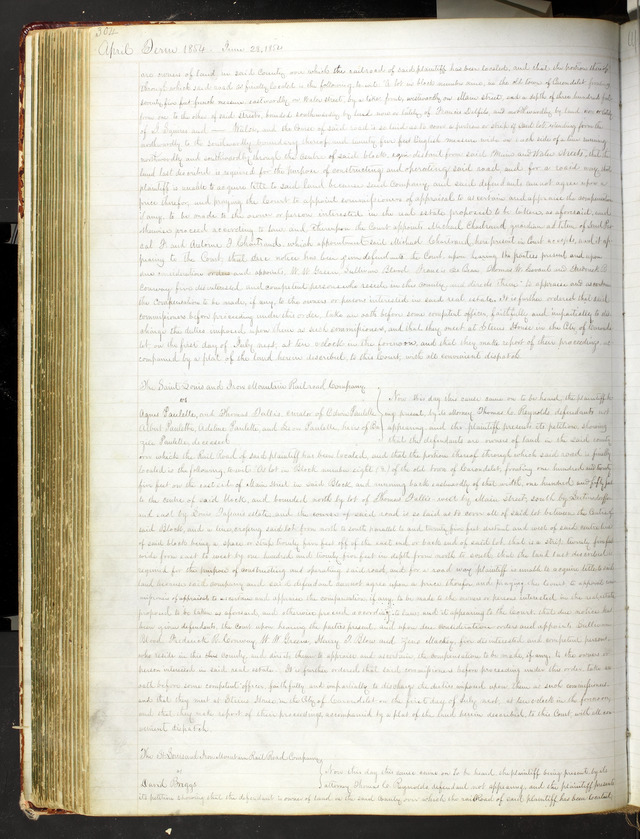 304
April Term 1854 June 23, 1854
are owners of land in said County, over which the railroad of said plaintiff has been located, and that the portion thereof
through which said road is finally located is the following, to wit: A lot in block number nine, in the old town of Carondelet fronting
seventy five feet french measure eastwardly on Water street, by a like front, westwardly on Main street, and a depth of three hundred feet
from one to the other of said streets, bounded southwardly by land now or lately, of Francis and northwardly by land now or lately
of and Walton, and the course of said road is so laid as to cover a portion or strip of said lot extending from the
northwardly to the southwardly boundary thereof and twenty five feet English measure wide on each side of a line running
northwardly and southwardly through the centre of said block, equi distant from said Main and Water Streets, that the
land last described is required for the purpose of constructing and operating said road and for a road way, that
plaintiff is unable to acquire title to said land because said Company and said defendants cannot agree upon a
price therefor, and praying the Court to appoint commissioners of appraisal to ascertain and appraise the compensation
if any, to be made to the owner or person interested in the real estate proposed to be taken as aforesaid, and
otherwise proceed according to law, and thereupon the Court appoints Michael Chartrand guardian ad litem of said
and Antoine Chartrand, which appointment said Michael Chartrand, here present in Court accepts, and it ap
pearing to the Court, that due notice has been given defendants, the Court upon hearing the parties present, and upon
due consideration orders and appoints, W. W. Green, Sullivan Blood, Francis Thomas and Frederick R.
Conway five disinterested, and competent persons who reside in this County, and directs them to appraise and ascertain
the compensation to be made, if any, to the owners or persons interested in said real estate. It is further ordered that said
commissioners before proceeding under this order, take an oath before some competent officer, faithfully and impartially to dis
charge the duties imposed upon them as such commissioners, and that they meet at House in the City of Caronde
let, on the first day of July next, at ten o'clock in the forenoon, and that they make report of their proceedings ac
companied by a plat of the land herein described, to this Court, with all convenient dispatch.
The Saint Louis and Iron Mountain Railroad Company
vs
Agnes Paulette, and Thomas curator of Paulette
Paulette, Adeline Paulette, and Paulette, heirs of
Paulette, deceased
Now this day this cause came on to be heard, the plaintiff be
ing present, by its Attorney Thomas C. Reynolds, defendants not
appearing, and the plaintiff presents its petition, showing
that the defendants are owners of land in the said county
over which the Rail Road of said plaintiff has been located, and that the portion thereof through which said road is finally
located is the following, to wit: A lot in Block number eight (8) of the old town of Carondelet, fronting one hundred and twenty
five feet on the east side of Main street in said Block, and running back eastwardly of that width, one hundred and fifty feet
to the centre of said block, and bounded north by lot of Thomas west by Main Street, south by
and east by estate, and the course of said road is so laid as to cover all of said lot between the Centre of
said Block, and a line crossing said lot from north to south parallel to and twenty five feet distant and west of said centre line
of said block being a space or strip twenty five feet off of the east end or back end of said lot, that is a strip twenty five feet
wide from east to west by one hundred and twenty five feet in depth from north to south that the land last described is
required for the purpose of constructing and operating said road and for a road way, plaintiff is unable to acquire title to said
land because said company and said defendant cannot agree upon a price therefor, and praying the Court to appoint com
missioners of appraisal to ascertain and appraise the compensation, if any, to be made to the owners or persons interested in the real estate
proposed to be taken as aforesaid, and otherwise proceed according to law, and it appearing to the Court, that due notice has
been given defendants, the Court upon hearing the parties present, and upon due consideration, orders and appoints Sullivan
Blood, Frederick R. Conway, W. W. Green, Henry T. Blow and Mackay, five disinterested, and competent persons,
who reside in this county and directs them to appraise and ascertain the compensation to be made, if any, to the owners or
persons interested in said real estate. It is further ordered that said commissioners before proceeding under this order, take an
oath before some competent officer, faithfully and impartially to discharge the duties imposed upon them as such commissioners
and that they meet at House in the City of Carondelet on the first day of July next, at ten o'clock in the forenoon,
and that they make report of their proceedings, accompanied by a plat of the land herein described, to this Court, with all con
venient dispatch.
The St Louis and Iron Mountain Rail Road Company
vs
David Briggs
Now this day this cause came on to be heard, the plaintiff being present, by its
attorney Thomas C. Reynolds, defendant not appearing, and the plaintiff presents
its petition, showing that the defendant is owner of land in the said County over which the rail road of said plaintiff has been located,